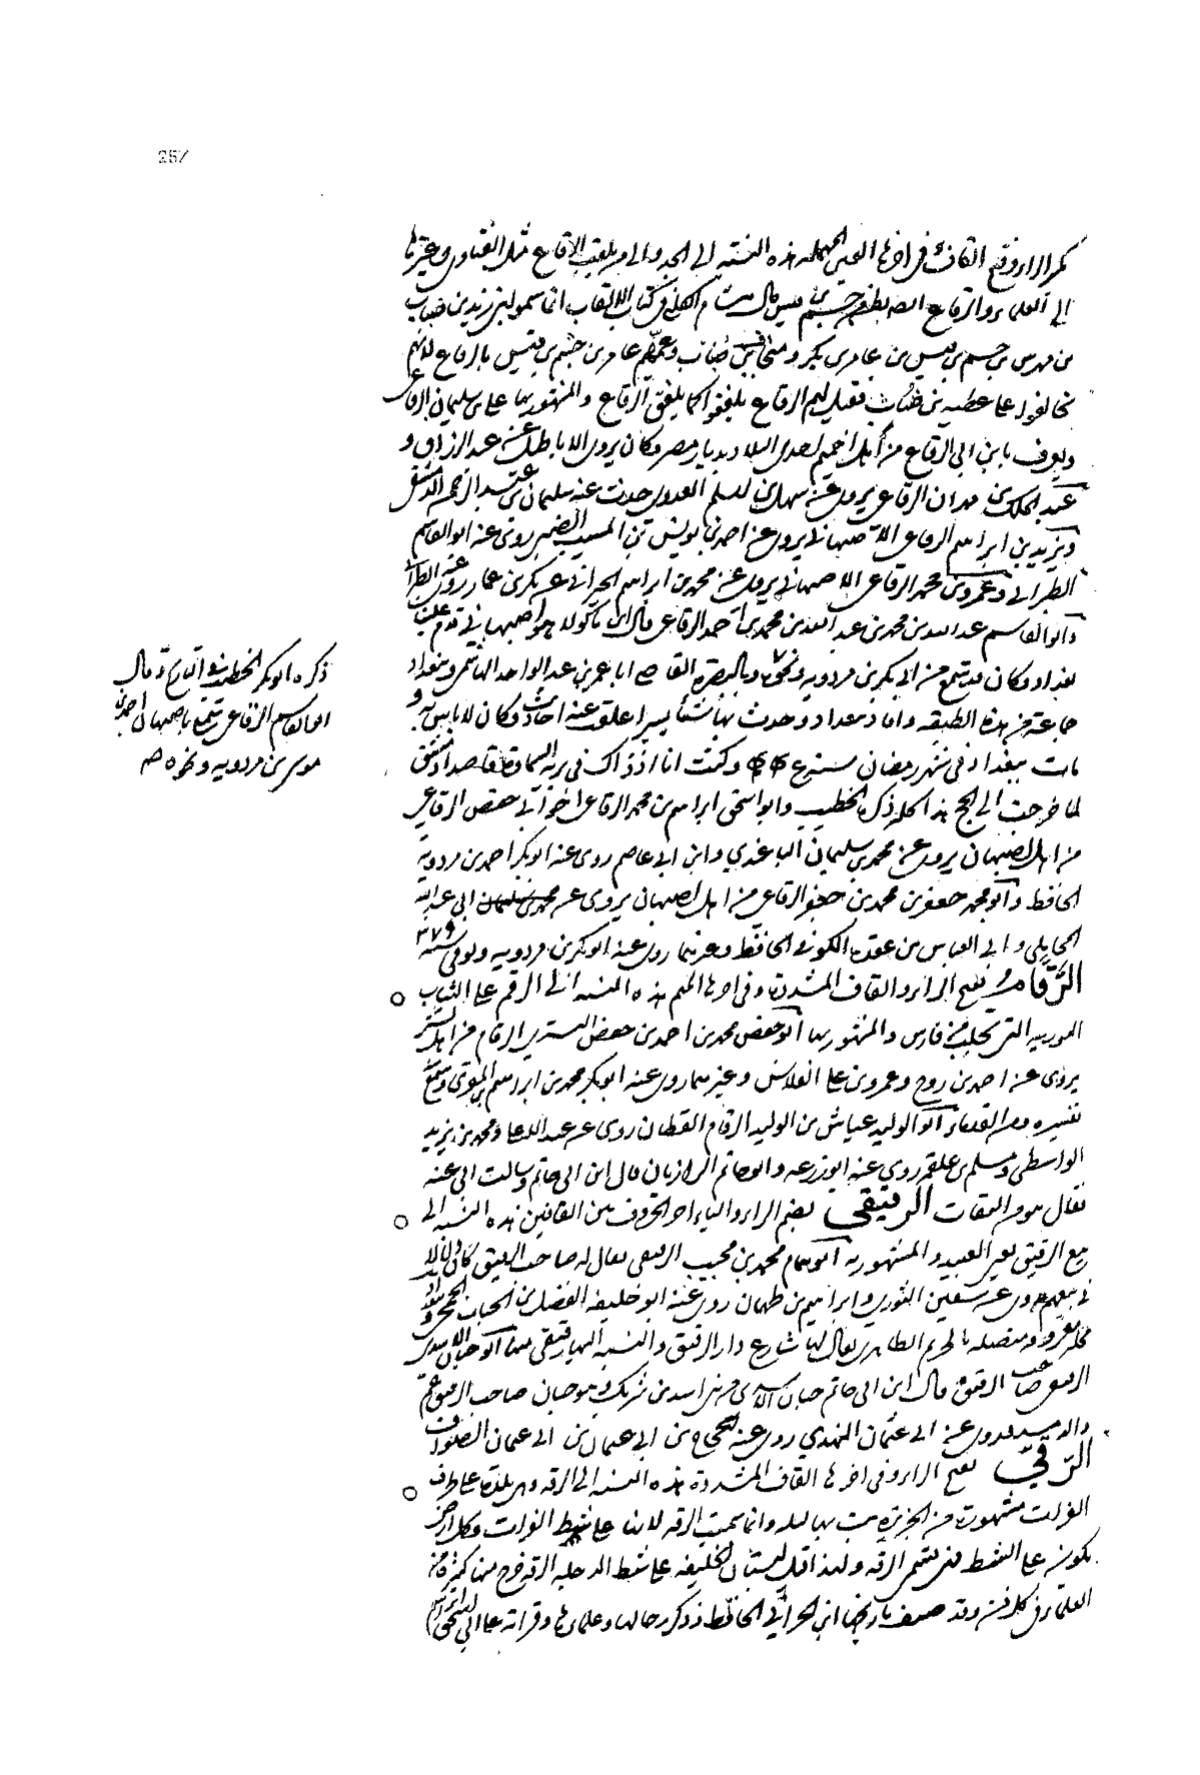 257
كسر الراء وفتح القاف وفي اخرها العين المهملة هذه النسبة الى الجد والى من يلقب بالرقاع مثل الفتاوى وغيرها
الى العلماء والرقاع بطن من جشم بن قيس قال هشام الكلبي في كتاب الالقاب انما سموا بنى زيد بن ضباب
بن جشم بن قيس بن عامر بن بكر ضباب وعمهم عامر بن جشم بن قيس بالرقاع لانهم
تحالفوا على عطية بن ضباب فقيل لهم الرقاع تلفقوا كما يلفق الرقاع والمشهور بها على بن سليمان الرقاعى
ويعرف بابن ابي الرقاع من اهل اخميم احدى البلاد بديار مصر وكان يروى الاباطيل عن عبد الرزاق و
عبد الملك بن مهران الرقاعى يروى عن سهل بن اسلم العدوى حدث عنه سليمان بن عبد الرحمن الدمشقى
ويزيد بن ابراهيم الرقاعى الاصبهاني يروى عن احمد بن يونس بن المسيب الضبى روى عنه ابو القاسم
الطبراني وعمرو بن محمد الرقاعى الاصبهاني يروى عن محمد بن ابراهيم الجيراني عن بكر بن بكار روى عنه الطبراني
وابو القاسم عبد الله بن محمد بن عبد الله بن محمد بن احمد الرقاعى قال ابن ماكولا هو اصبهاني قدم علينا
بغداد وكان قد سمع من ابى بكر بن مردويه ونحوه وبالبصرة القاضى ابا عمر بن عبد الواحد الهاشمى وببغداد
جماعة من هذه الطبقة واقام ببغداد وحدث بها شيئا يسيرا علقت عنه احاديث وكان لا باس به و
مات ببغداد فى شهر رمضان سنة وكنت انا اذ ذاك فى برية السماوة قاصدا دمشق
لما خرجت الى الحج هذا كله ذكره الخطيب وابو اسحق ابراهيم بن محمد الرقاعى اخو ابى حفص الرقاعى
من اهل اصبهان يروى عن محمد بن سليمان الباغندي وابن ابى عاصم روى عنه ابو بكر احمد بن مردويه
الحافظ وابو محمد جعفر بن محمد بن جعفر الرقاعى من اهل اصبهان يروى عن محمد بن سليمان ابى عبد الله
المحاملى وابى العباس بن عقدة الكوفى الحافظ وغيرهما روى عنه ابو بكر بن مردويه وتوفى سنة ٣٧٩
الرقام بفتح الراء والقاف المشددة وفى اخرها الميم هذه النسبة الى الرقم على الثياب
التى تجلب من فارس والمشهور بها ابو حفص محمد بن احمد بن حفص التسترى الرقام من اهل تستر
يروى عن احمد بن روح وعمرو بن على الفلاس وغيرهما روى عنه ابو بكر محمد بن ابراهيم بن المقرى وسمع
تفسيره ومن القدماء ابو الوليد عياش بن الوليد الرقام القطان روى عن عبد الاعلى ومحمد بن يزيد
الواسطى ومسلمة بن علقمة روى عنه ابو زرعة وابو حاتم الرازيان قال ابن ابى حاتم وسالت ابى عنه
فقال هو من الثقات الرقيقى بضم الراء والياء اخر الحروف بين القافين هذه النسبة الى
بيع الرقيق يعنى العبيد والمشهور به ابو همام محمد بن محبب الرقيقى يقال له صاحب الرقيق كان دلالا
فى بيعهم يروى عن سفين الثورى وابراهيم بن طهمان روى عنه ابو خليفة الفضل بن الحباب الجمحى وببغداد
محلة معروفة متصلة بالحريم الطاهرى يقال لها شارع دار الرقيق والنسبة اليها رقيقى منها ابو حيان الاسدى
الرقيقى صاحب الرقيق قال ابن ابى حاتم حنان الاسدى من بنى اسد بن شريك وهو حنان صاحب الرقيق عم
والد مسدد يروى عن ابى عثمان النهدى روى عنه الحجاج بن ابى عثمان بن ابى عثمان الصواف
الرقى بفتح الراء وفى اخرها القاف المشددة هذه النسبة الى الرقة وهى بلدة على طرف
الفرات مشهورة من الجزيرة بت بها ليلة وانما سميت الرقة لانها على شط الفرات وكل ارض
تكون على الشط فهى تسمى الرقة ولهذا قيل لبستان الخليفة على شط الدجلة الرقة خرج منها كثرة من
العلماء فى كل فن وقد صنف تاريخها ابن الحرانى الحافظ وذكر رجالها وعلماءها وقراته على ابى اسحق
ذكره ابو بكر الخطيب فى التاريخ وقال
ابو القاسم الرقاعى سمع باصبهان احمد بن
موسى بن مردويه وغيره